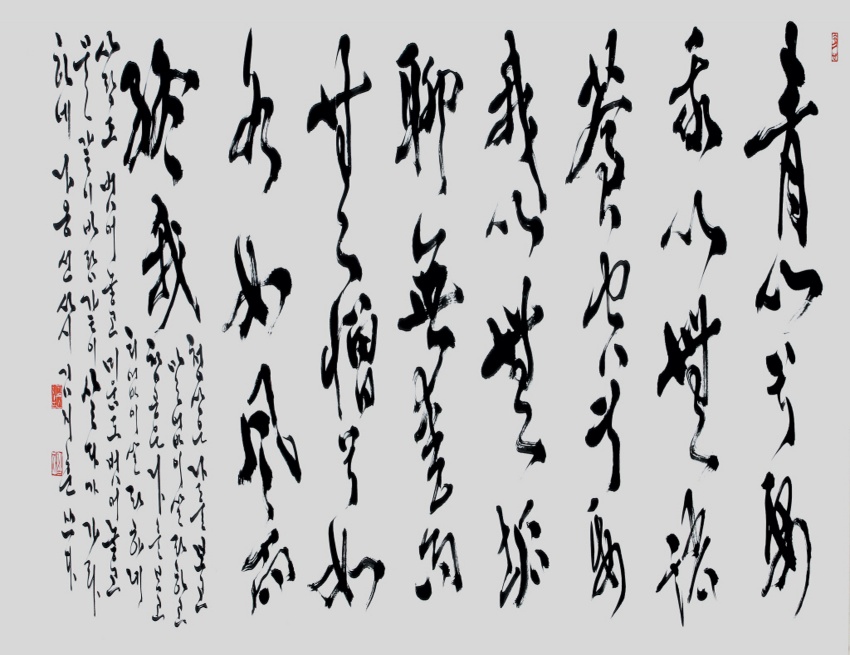 青山兮要
我以無語
蒼空兮要
我以無垢
聊無愛而
無憎兮如
水如風而
終我
청산은 나를 보고
말없이 살라하고
창공은 나를 보고
티없이 살라하네
사랑도 벗어 놓고 미움도 벗어 놓고
물같이 바람같이 살다가 가라
하네 나옹선사 시